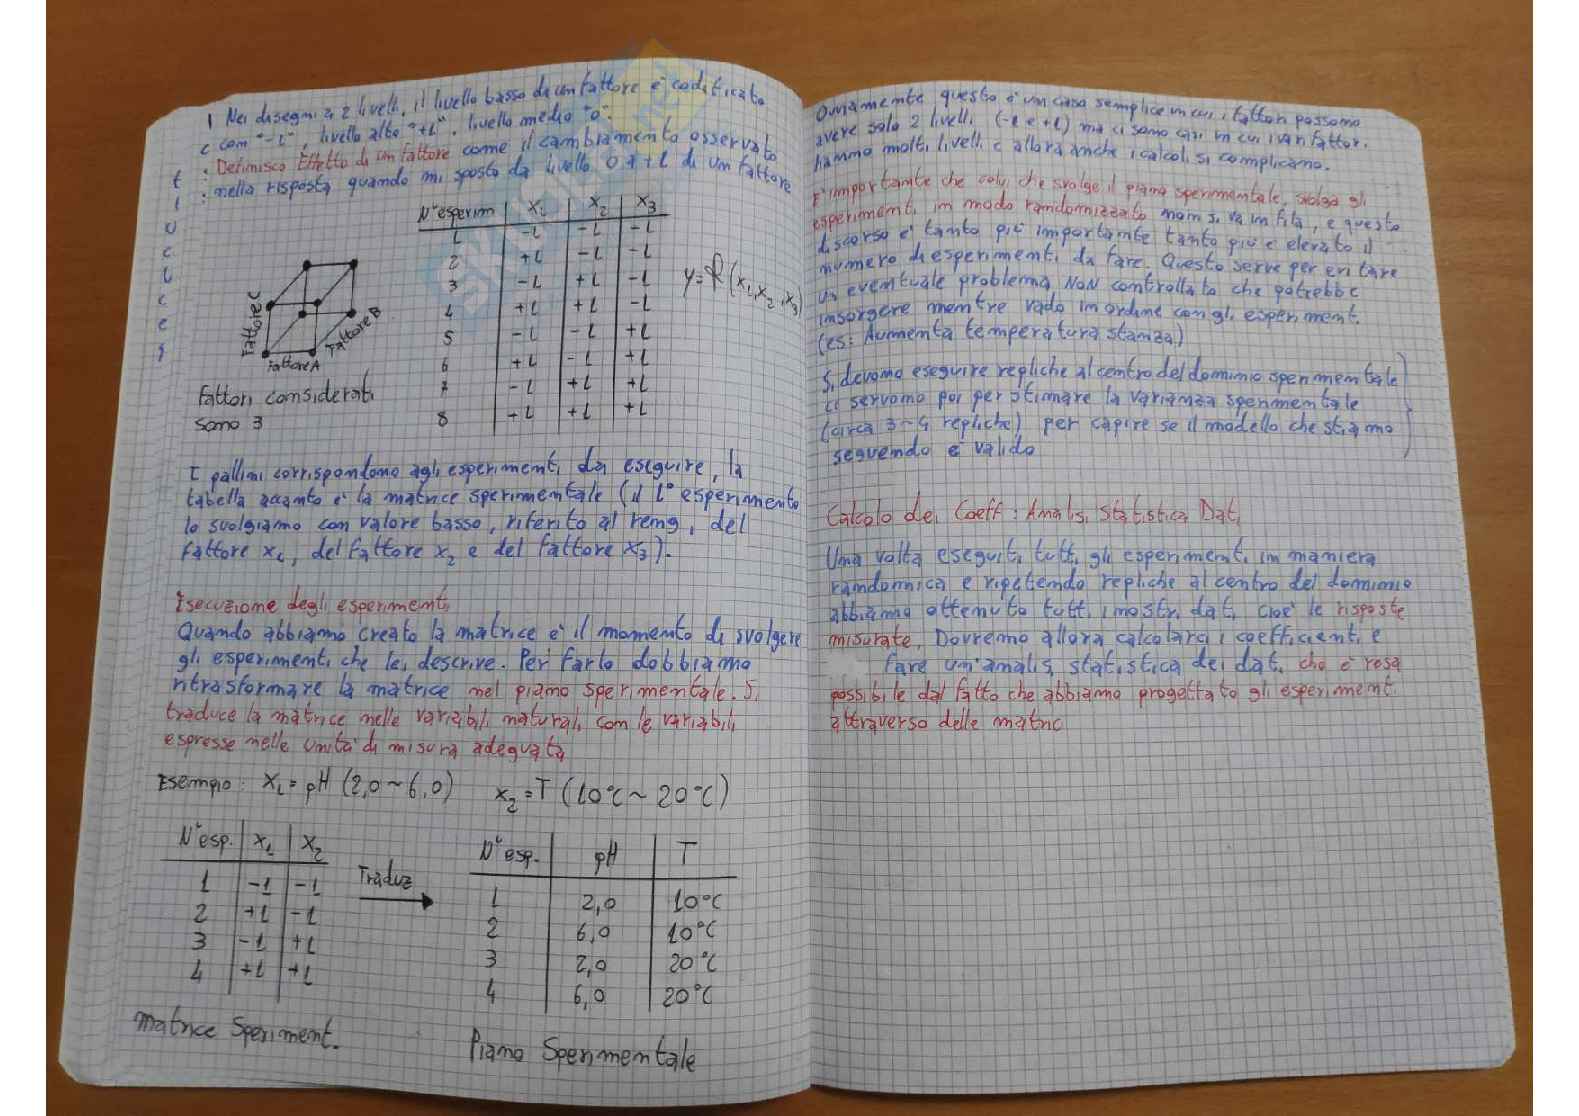 Nei disegni a 2 livelli, il livello basso di un fattore è codificato
con "-1", livello alto "+1". livello medio "0".
: Definisco Effetto di un fattore come il cambiamento osservato
: nella risposta quando mi sposto da livello 0 a +1 di un fattore
N° esperim x1 x2 x3
1 -1 -1 -1
2 +1 -1 -1
3 -1 +1 -1
4 +1 +1 -1
5 -1 -1 +1
6 +1 -1 +1
7 -1 +1 +1
8 +1 +1 +1
y=f(x1,x2,x3)
Fattore C
Fattore B
Fattore A
fattori considerati
sono 3
I pallini corrispondono agli esperimenti da eseguire, la
tabella accanto è la matrice sperimentale (il 1° esperimento
lo svolgiamo con valore basso, riferito al remg, del
fattore x1, del fattore x2 e del fattore x3).
Esecuzione degli esperimenti
Quando abbiamo creato la matrice è il momento di svolgere
gli esperimenti che lei descrive. Per farlo dobbiamo
ritrasformare la matrice nel piano sperimentale. Si
traduce la matrice nelle variabili naturali, con le variabili
espresse nelle unità di misura adeguata
Esempio: x1=pH (2,0~6,0) x2=T (10°C~20°C)
N°esp. x1 x2
1 -1 -1
2 +1 -1
3 -1 +1
4 +1 +1
Traduz
N°esp. pH T
1 2,0 10°C
2 6,0 10°C
3 2,0 20°C
4 6,0 20°C
Matrice Speriment.
Piano Sperimentale
Ovviamente questo è un caso semplice in cui i fattori possono
avere solo 2 livelli (-1 e +1) ma ci sono casi in cui i vari fattori
hanno molti livelli e allora anche i calcoli si complicano.
E' importante che colui che svolge il piano sperimentale, svolga gli
esperimenti in modo randomizzato non si va in fila, e questo
discorso è tanto più importante tanto più è elevato il
numero di esperimenti da fare. Questo serve per evitare
un eventuale problema NON controllato che potrebbe
insorgere mentre vado in ordine con gli esperimenti.
(es: Aumenta temperatura stanza)
Si devono eseguire repliche al centro del dominio sperimentale
ci servono poi per stimare la varianza sperimentale
(circa 3~4 repliche) per capire se il modello che stiamo
seguendo è valido
Calcolo dei Coeff: Analisi Statistica Dati
Una volta eseguiti tutti gli esperimenti in maniera
randomica e ripetendo repliche al centro del dominio
abbiamo ottenuto tutti i nostri dati cioè le risposte
misurate. Dovremo allora calcolarci i coefficienti e
fare un'analisi statistica dei dati, che è resa
possibile dal fatto che abbiamo progettato gli esperimenti
attraverso delle matrici